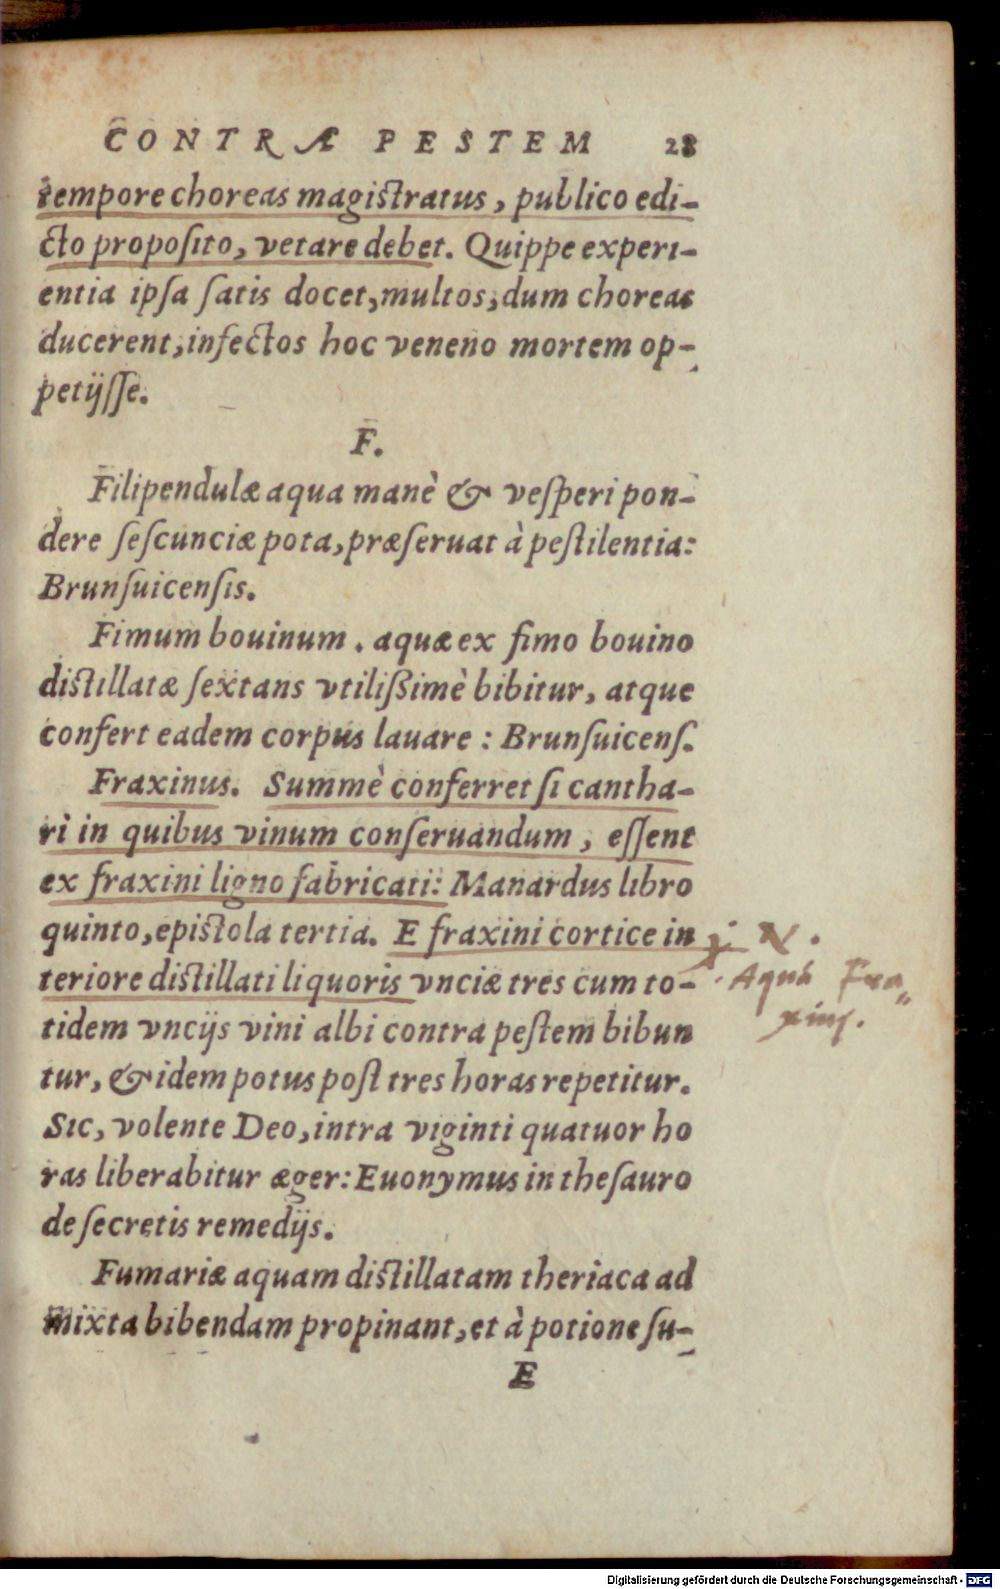 CONTRÆ PESTEM 28
tempore choreas magistratus, publico edi-
cto proposito, vetare debet. Quippe experi-
entia ipsa satis docet, multos, dum choreas
ducerent, infectos hoc veneno mortem op-
petijsse.
F.
Filipendulæ aqua manè & vesperi pon-
dere sescunciæ pota, præseruat à pestilentia:
Brunsuicensis.
Fimum bouinum. aquæ ex fimo bouino
distillatæ sextans vtilißimè bibitur, atque
confert eadem corpus lauare : Brunsuicens.
Fraxinus. Summè conferret si cantha-
ri in quibus vinum conseruandum, essent
ex fraxini ligno fabricati: Manardus libro
quinto, epistola tertia. E fraxini cortice in
teriore distillati liquoris vnciæ tres cum to-
tidem vncijs vini albi contra pestem bibun
tur, & idem potus post tres horas repetitur.
Sic, volente Deo, intra viginti quatuor ho
ras liberabitur æger: Euonymus in thesauro
de secretis remedijs.
Fumariæ aquam distillatam theriaca ad
mixta bibendam propinant, et à potione su-
E
N.
Aqua Fra„
xini.
Digitalisierung gefördert durch die Deutsche Forschungsgemeinschaft - DFG